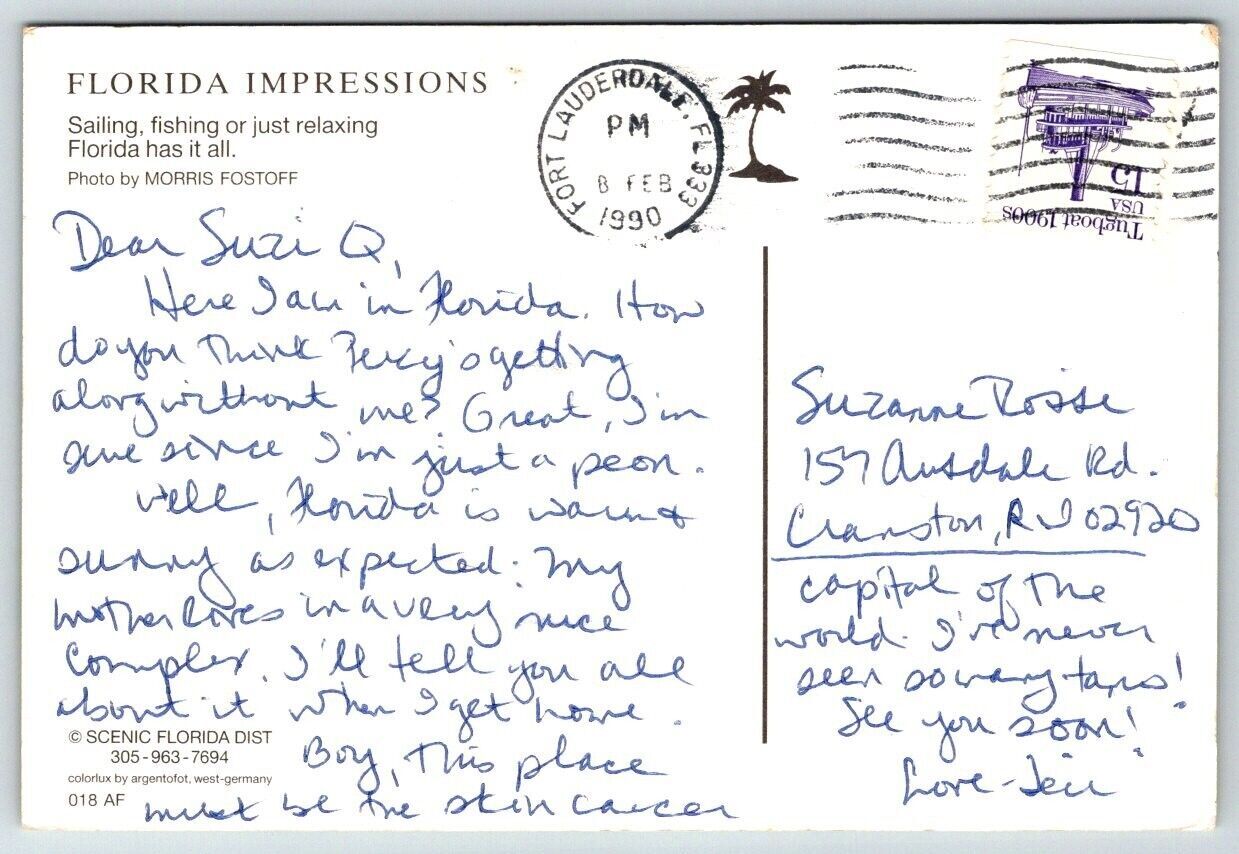 FLORIDA IMPRESSIONS
Sailing, fishing or just relaxing
Florida has it all.
Photo by MORRIS FOSTOFF
FORT LAUDERDALE, FL 333
PM
8 FEB
1990
15
USA
Tugboat 1900s
Dear Suzi Q,
Here I am in Florida. How
do you think Percy's getting
along without me? Great, I'm
sure since I'm just a peon.
Well, Florida is warm &
sunny as expected. My
mother lives in a very nice
complex. I'll tell you all
about it when I get home.
Boy, this place
must be the skin cancer
capital of the
world. I've never
seen so many tans!
See you soon!
Love - 
Suzanne
157 Ausdale Rd.
Cranston, RI 02920
© SCENIC FLORIDA DIST
305-963-7694
colorlux by argentofot, west-germany
018 AF